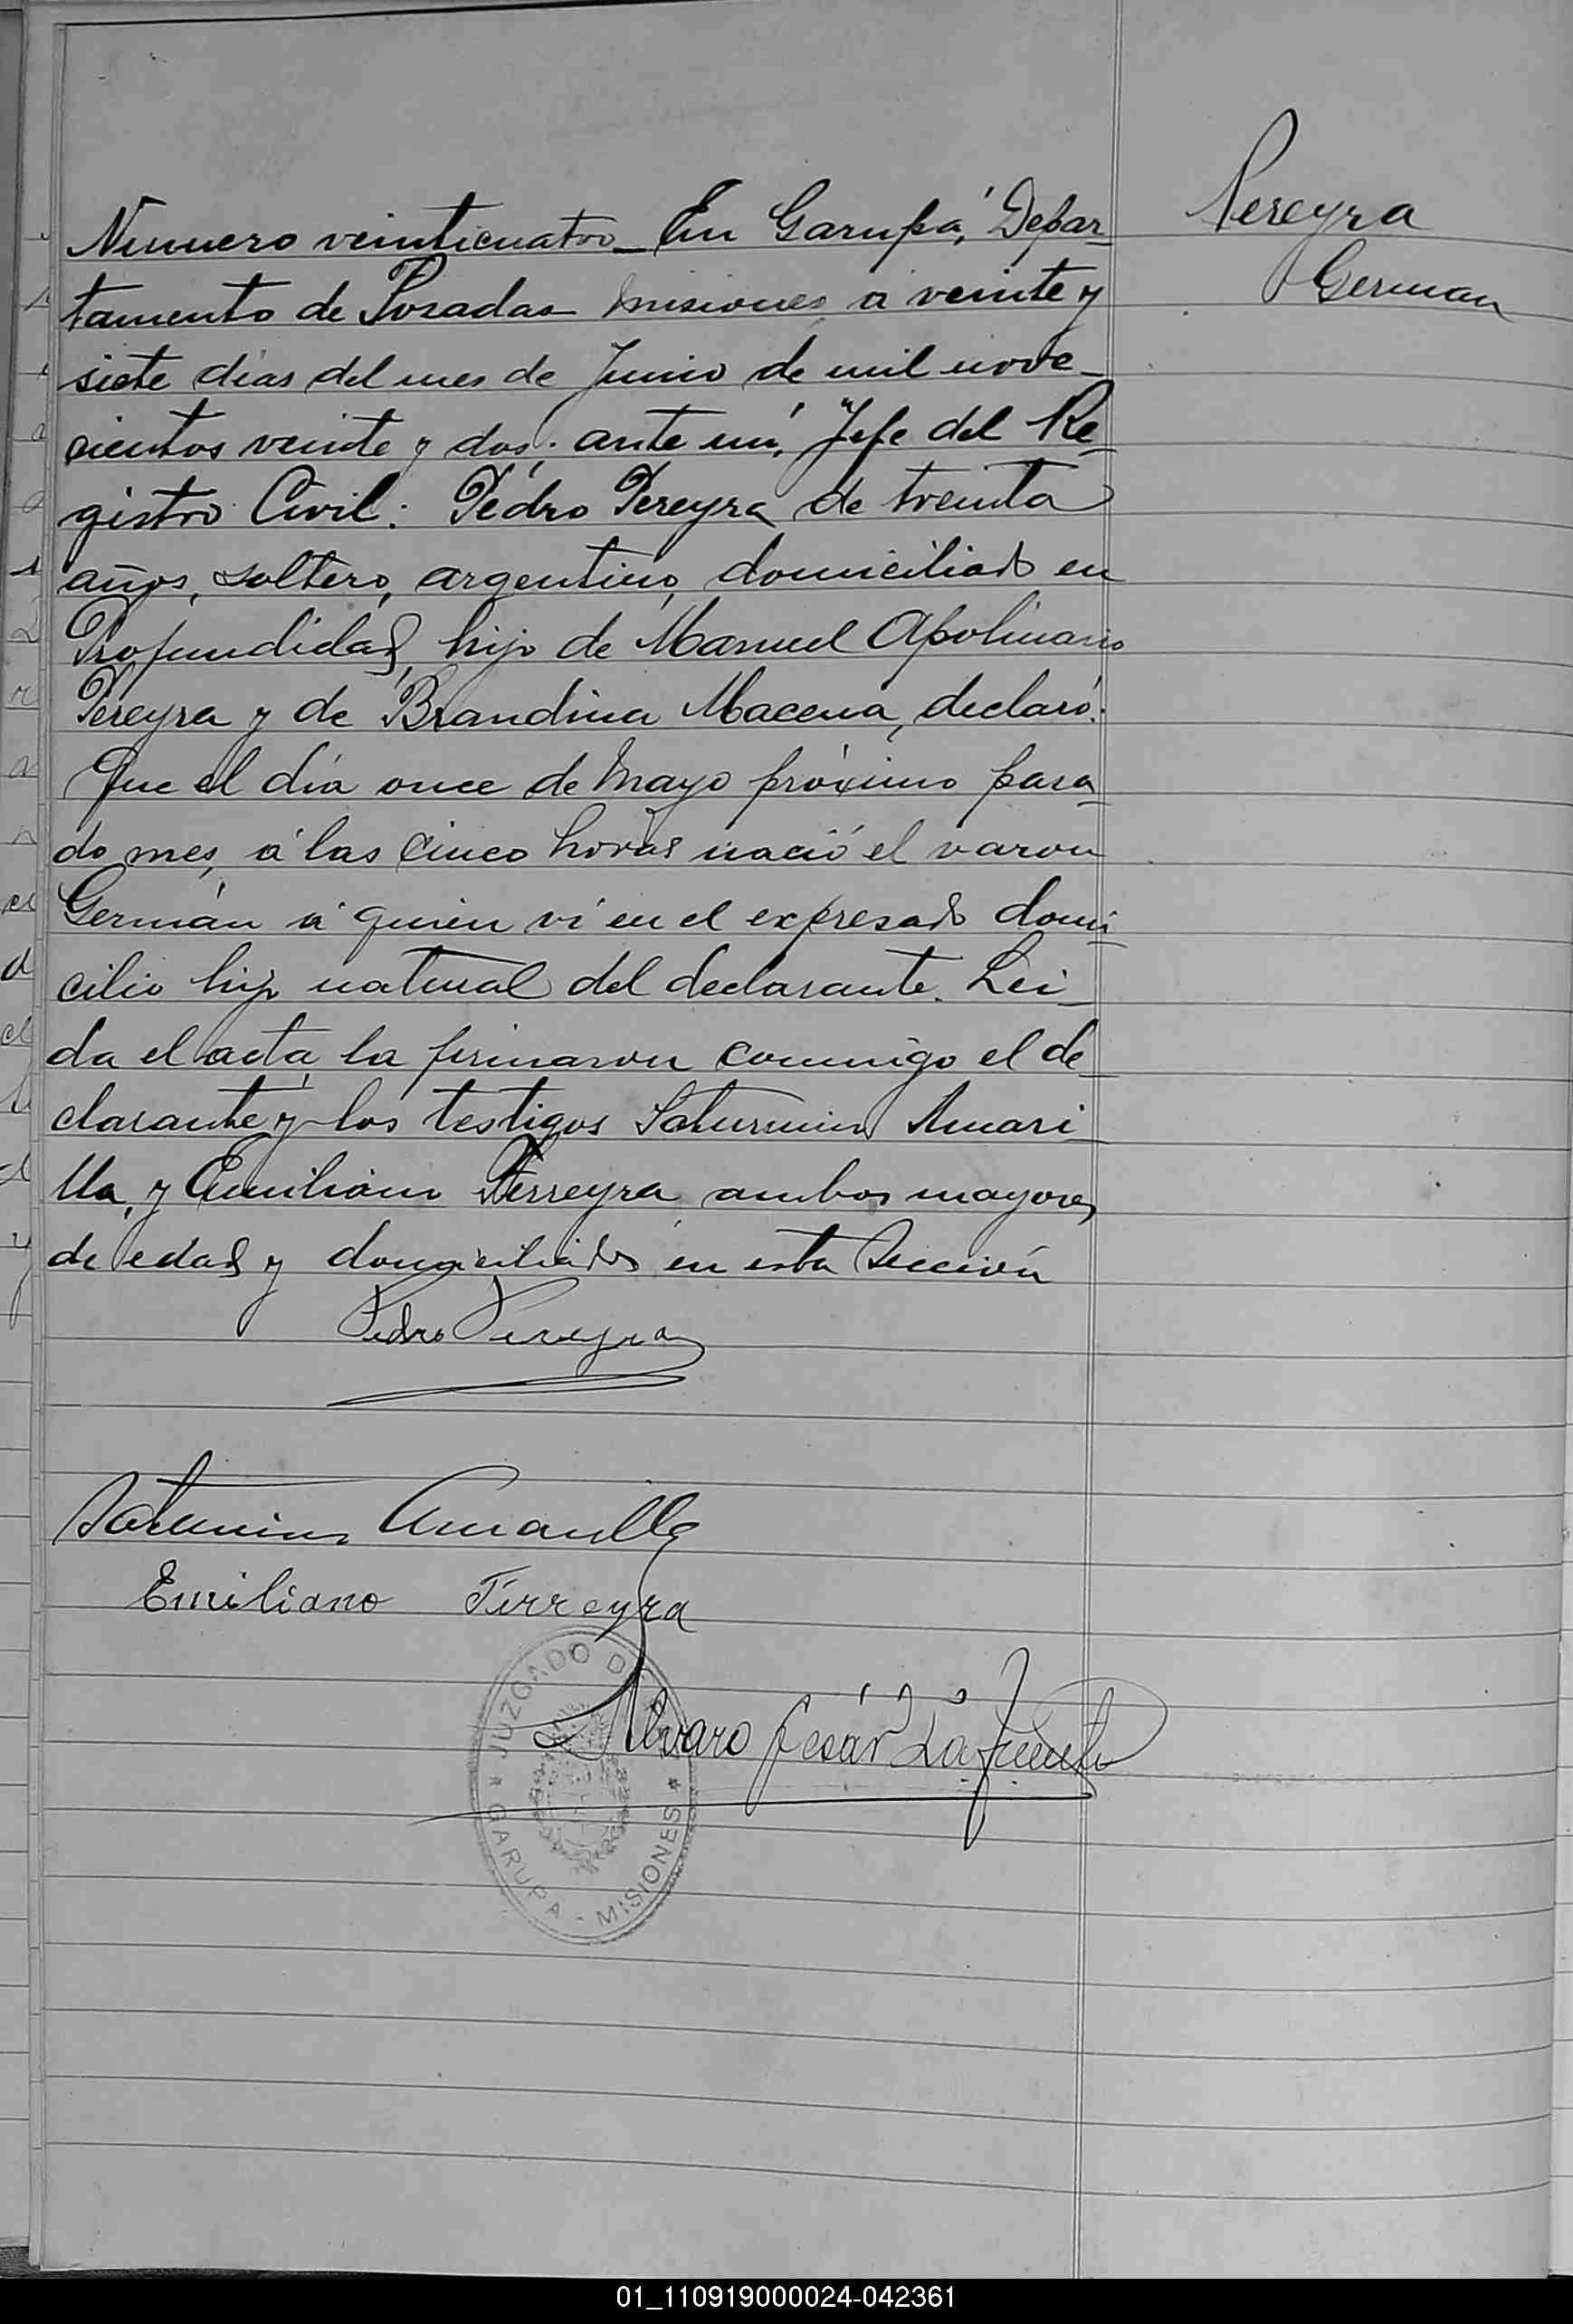 Pereyra
German
Numero veinticuatro_ En Garupá, Depar-
tamento de Posadas Misiones, a veinte y
siete dias del mes de Junio de mil nove-
cientos veinte y dos; ante mí, Jefe del Re-
gistro Civil: Pedro Pereyra de treinta
años, soltero, argentino, domiciliado en
Profundidad, hijo de Manuel Apolinario
Pereyra y de Brandina Macena, declaró:
Que el día once de Mayo próximo pasa-
do mes, á las cinco horas nació el varon
Germán á quien ví en el expresado domi-
cilio hijo natural del declarante. Lei-
da el acta, la firmaron conmigo el de-
clarante y los testigos Saturnino Amari-
lla, y Emiliano Ferreyra ambos mayores
de edad y domiciliados en esta Sección
Pedro Pereyra
Saturnino Amarilla
Emiliano Firreyra
Alvaro César Lafuente
JUZGADO DE
GARUPA - MISIONES
01_110919000024-042361